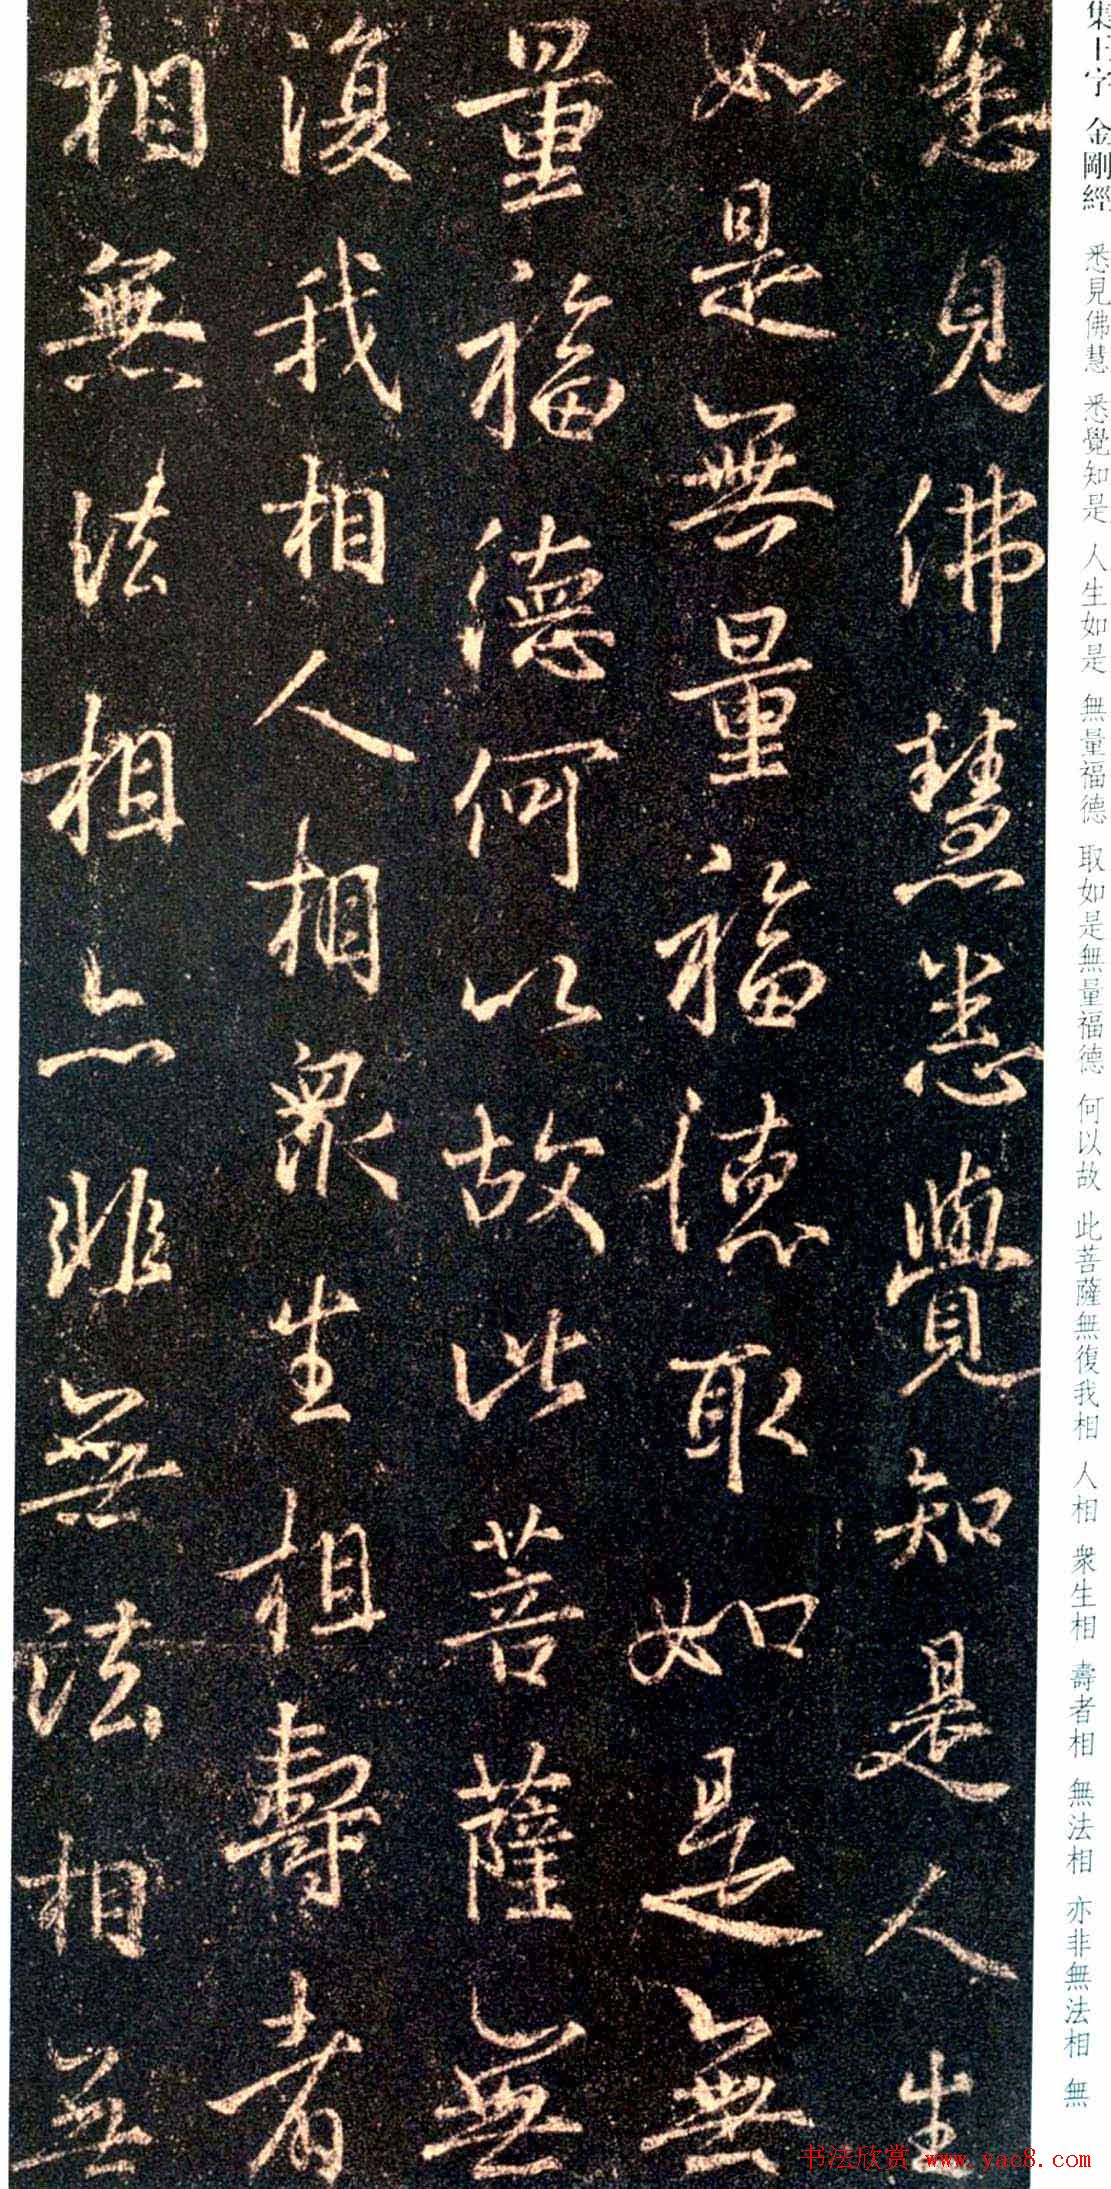 集王字 金剛經 悉見佛慧 悉覺知是 人生如是 無量福德 取如是無量福德 何以故 此菩薩無復我相 人相 衆生相 壽者相 無法相 亦非無法相 無
悉見佛慧悉覺知是人生
如是無量福德取如是無
量福德何以故此菩薩無
復我相人相衆生相壽者
相無法相亦非無法相無
书法欣赏 www.yac8.com